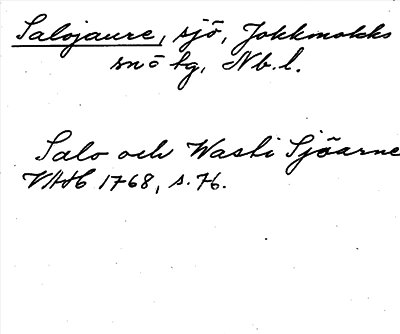 Salojaure, sjö, Jokkmokks
snö lg, Nb.l.
Salo och Wasti Sjöarne
VAH 1768, s. 76.